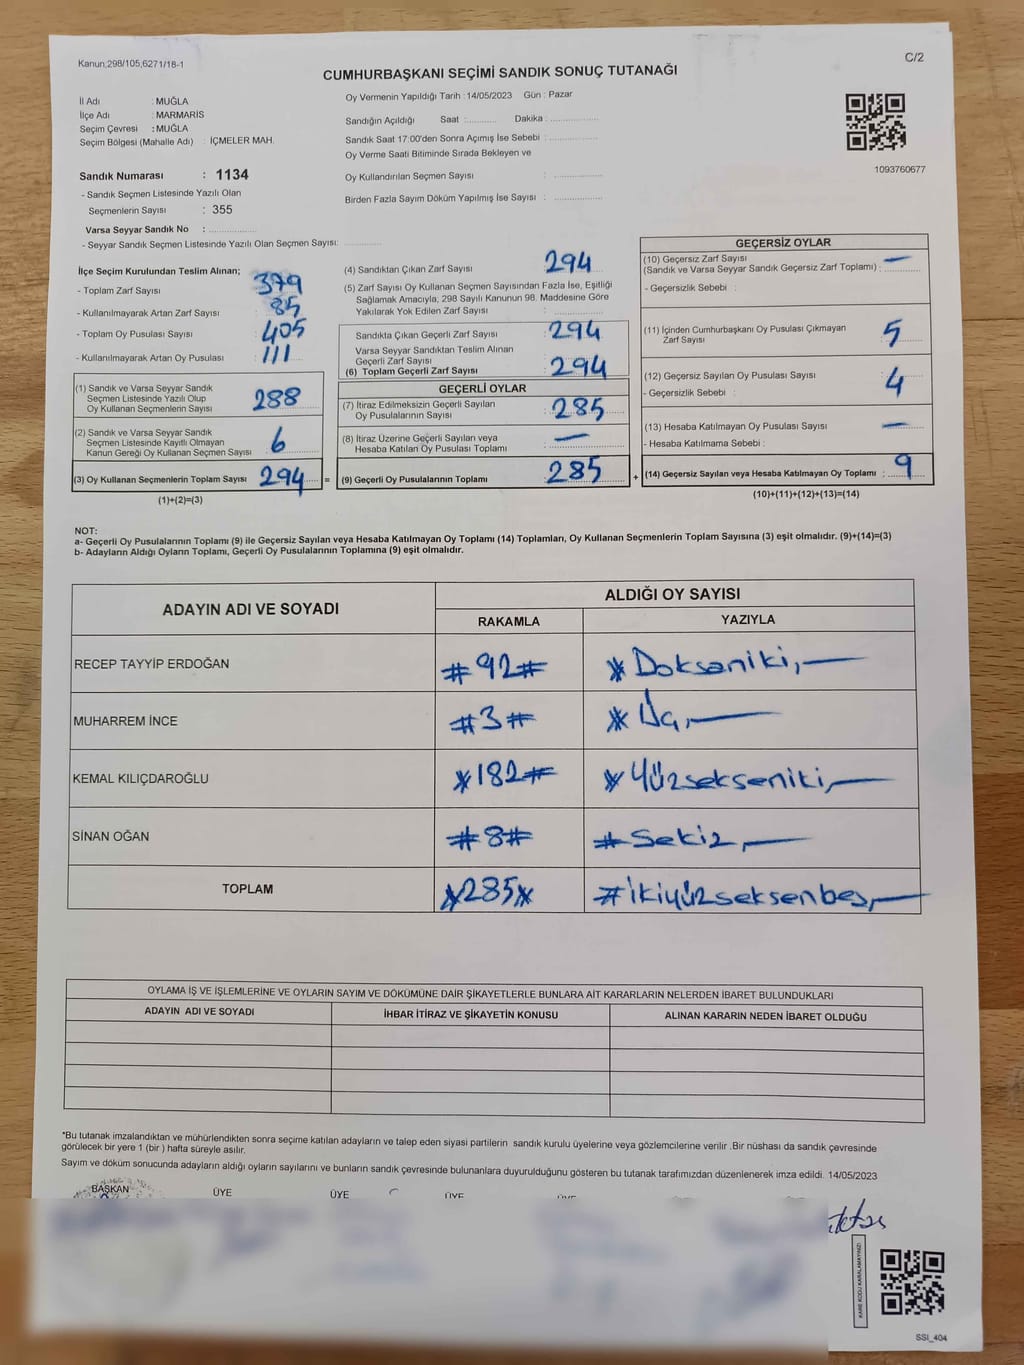 Kanun,298/105,6271/18-1
C/2
CUMHURBAŞKANI SEÇİMİ SANDIK SONUÇ TUTANAĞI
İl Adı : MUĞLA
İlçe Adı : MARMARİS
Seçim Çevresi : MUĞLA
Seçim Bölgesi (Mahalle Adı) : İÇMELER MAH.
Sandık Numarası : 1134
- Sandık Seçmen Listesinde Yazılı Olan
Seçmenlerin Sayısı : 355
Varsa Seyyar Sandık No :
- Seyyar Sandık Seçmen Listesinde Yazılı Olan Seçmen Sayısı:
Oy Vermenin Yapıldığı Tarih : 14/05/2023 Gün : Pazar
Sandığın Açıldığı Saat : Dakika :
Sandık Saat 17:00'den Sonra Açımış İse Sebebi :
Oy Verme Saati Bitiminde Sırada Bekleyen ve
Oy Kullandırılan Seçmen Sayısı :
Birden Fazla Sayım Döküm Yapılmış İse Sayısı :
1093760677
İlçe Seçim Kurulundan Teslim Alınan;
- Toplam Zarf Sayısı : 379
- Kullanılmayarak Artan Zarf Sayısı : 85
- Toplam Oy Pusulası Sayısı : 405
- Kullanılmayarak Artan Oy Pusulası : 111
(1) Sandık ve Varsa Seyyar Sandık
Seçmen Listesinde Yazılı Olup
Oy Kullanan Seçmenlerin Sayısı : 288
(2) Sandık ve Varsa Seyyar Sandık
Seçmen Listesinde Kayıtlı Olmayan
Kanun Gereği Oy Kullanan Seçmen Sayısı : 6
(3) Oy Kullanan Seçmenlerin Toplam Sayısı : 294
(1)+(2)=(3)
(4) Sandıktan Çıkan Zarf Sayısı : 294
(5) Zarf Sayısı Oy Kullanan Seçmen Sayısından Fazla İse, Eşitliği
Sağlamak Amacıyla, 298 Sayılı Kanunun 98. Maddesine Göre
Yakılarak Yok Edilen Zarf Sayısı :
Sandıkta Çıkan Geçerli Zarf Sayısı : 294
Varsa Seyyar Sandıktan Teslim Alınan
Geçerli Zarf Sayısı :
(6) Toplam Geçerli Zarf Sayısı : 294
GEÇERLİ OYLAR
(7) İtiraz Edilmeksizin Geçerli Sayılan
Oy Pusulalarının Sayısı : 285
(8) İtiraz Üzerine Geçerli Sayılan veya
Hesaba Katılan Oy Pusulaları Toplamı : —
= (9) Geçerli Oy Pusulalarının Toplamı : 285
GEÇERSİZ OYLAR
(10) Geçersiz Zarf Sayısı
(Sandık ve Varsa Seyyar Sandık Geçersiz Zarf Toplamı) : —
- Geçersizlik Sebebi :
(11) İçinden Cumhurbaşkanı Oy Pusulası Çıkmayan
Zarf Sayısı : 5
(12) Geçersiz Sayılan Oy Pusulası Sayısı : 4
- Geçersizlik Sebebi :
(13) Hesaba Katılmayan Oy Pusulası Sayısı : —
- Hesaba Katılmama Sebebi :
+ (14) Geçersiz Sayılan veya Hesaba Katılmayan Oy Toplamı : 9
(10)+(11)+(12)+(13)=(14)
NOT:
a- Geçerli Oy Pusulalarının Toplamı (9) ile Geçersiz Sayılan veya Hesaba Katılmayan Oy Toplamı (14) Toplamları, Oy Kullanan Seçmenlerin Toplam Sayısına (3) eşit olmalıdır. (9)+(14)=(3)
b- Adayların Aldığı Oyların Toplamı, Geçerli Oy Pusulalarının Toplamına (9) eşit olmalıdır.
ADAYIN ADI VE SOYADI ALDIĞI OY SAYISI
RAKAMLA YAZIYLA
RECEP TAYYİP ERDOĞAN #92# * Doksaniki,—
MUHARREM İNCE #3# * Üç,—
KEMAL KILIÇDAROĞLU *182# * Yüzsekseniki,—
SİNAN OĞAN #8# # Sekiz,—
TOPLAM *285* # ikiyüzseksenbeş,—
OYLAMA İŞ VE İŞLEMLERİNE VE OYLARIN SAYIM VE DÖKÜMÜNE DAİR ŞİKAYETLERLE BUNLARA AİT KARARLARIN NELERDEN İBARET BULUNDUKLARI
ADAYIN ADI VE SOYADI İHBAR İTİRAZ VE ŞİKAYETİN KONUSU ALINAN KARARIN NEDEN İBARET OLDUĞU
*Bu tutanak imzalandıktan ve mühürlendikten sonra seçime katılan adayların ve talep eden siyasi partilerin sandık kurulu üyelerine veya gözlemcilerine verilir .Bir nüshası da sandık çevresinde
görülecek bir yere 1 (bir ) hafta süreyle asılır.
Sayım ve döküm sonucunda adayların aldığı oyların sayılarını ve bunların sandık çevresinde bulunanlara duyurulduğunu gösteren bu tutanak tarafımızdan düzenlenerek imza edildi. 14/05/2023
BAŞKAN ÜYE ÜYE ÜYE ÜYE
KARE KODU KARALAMAYINIZ!
SSI_404